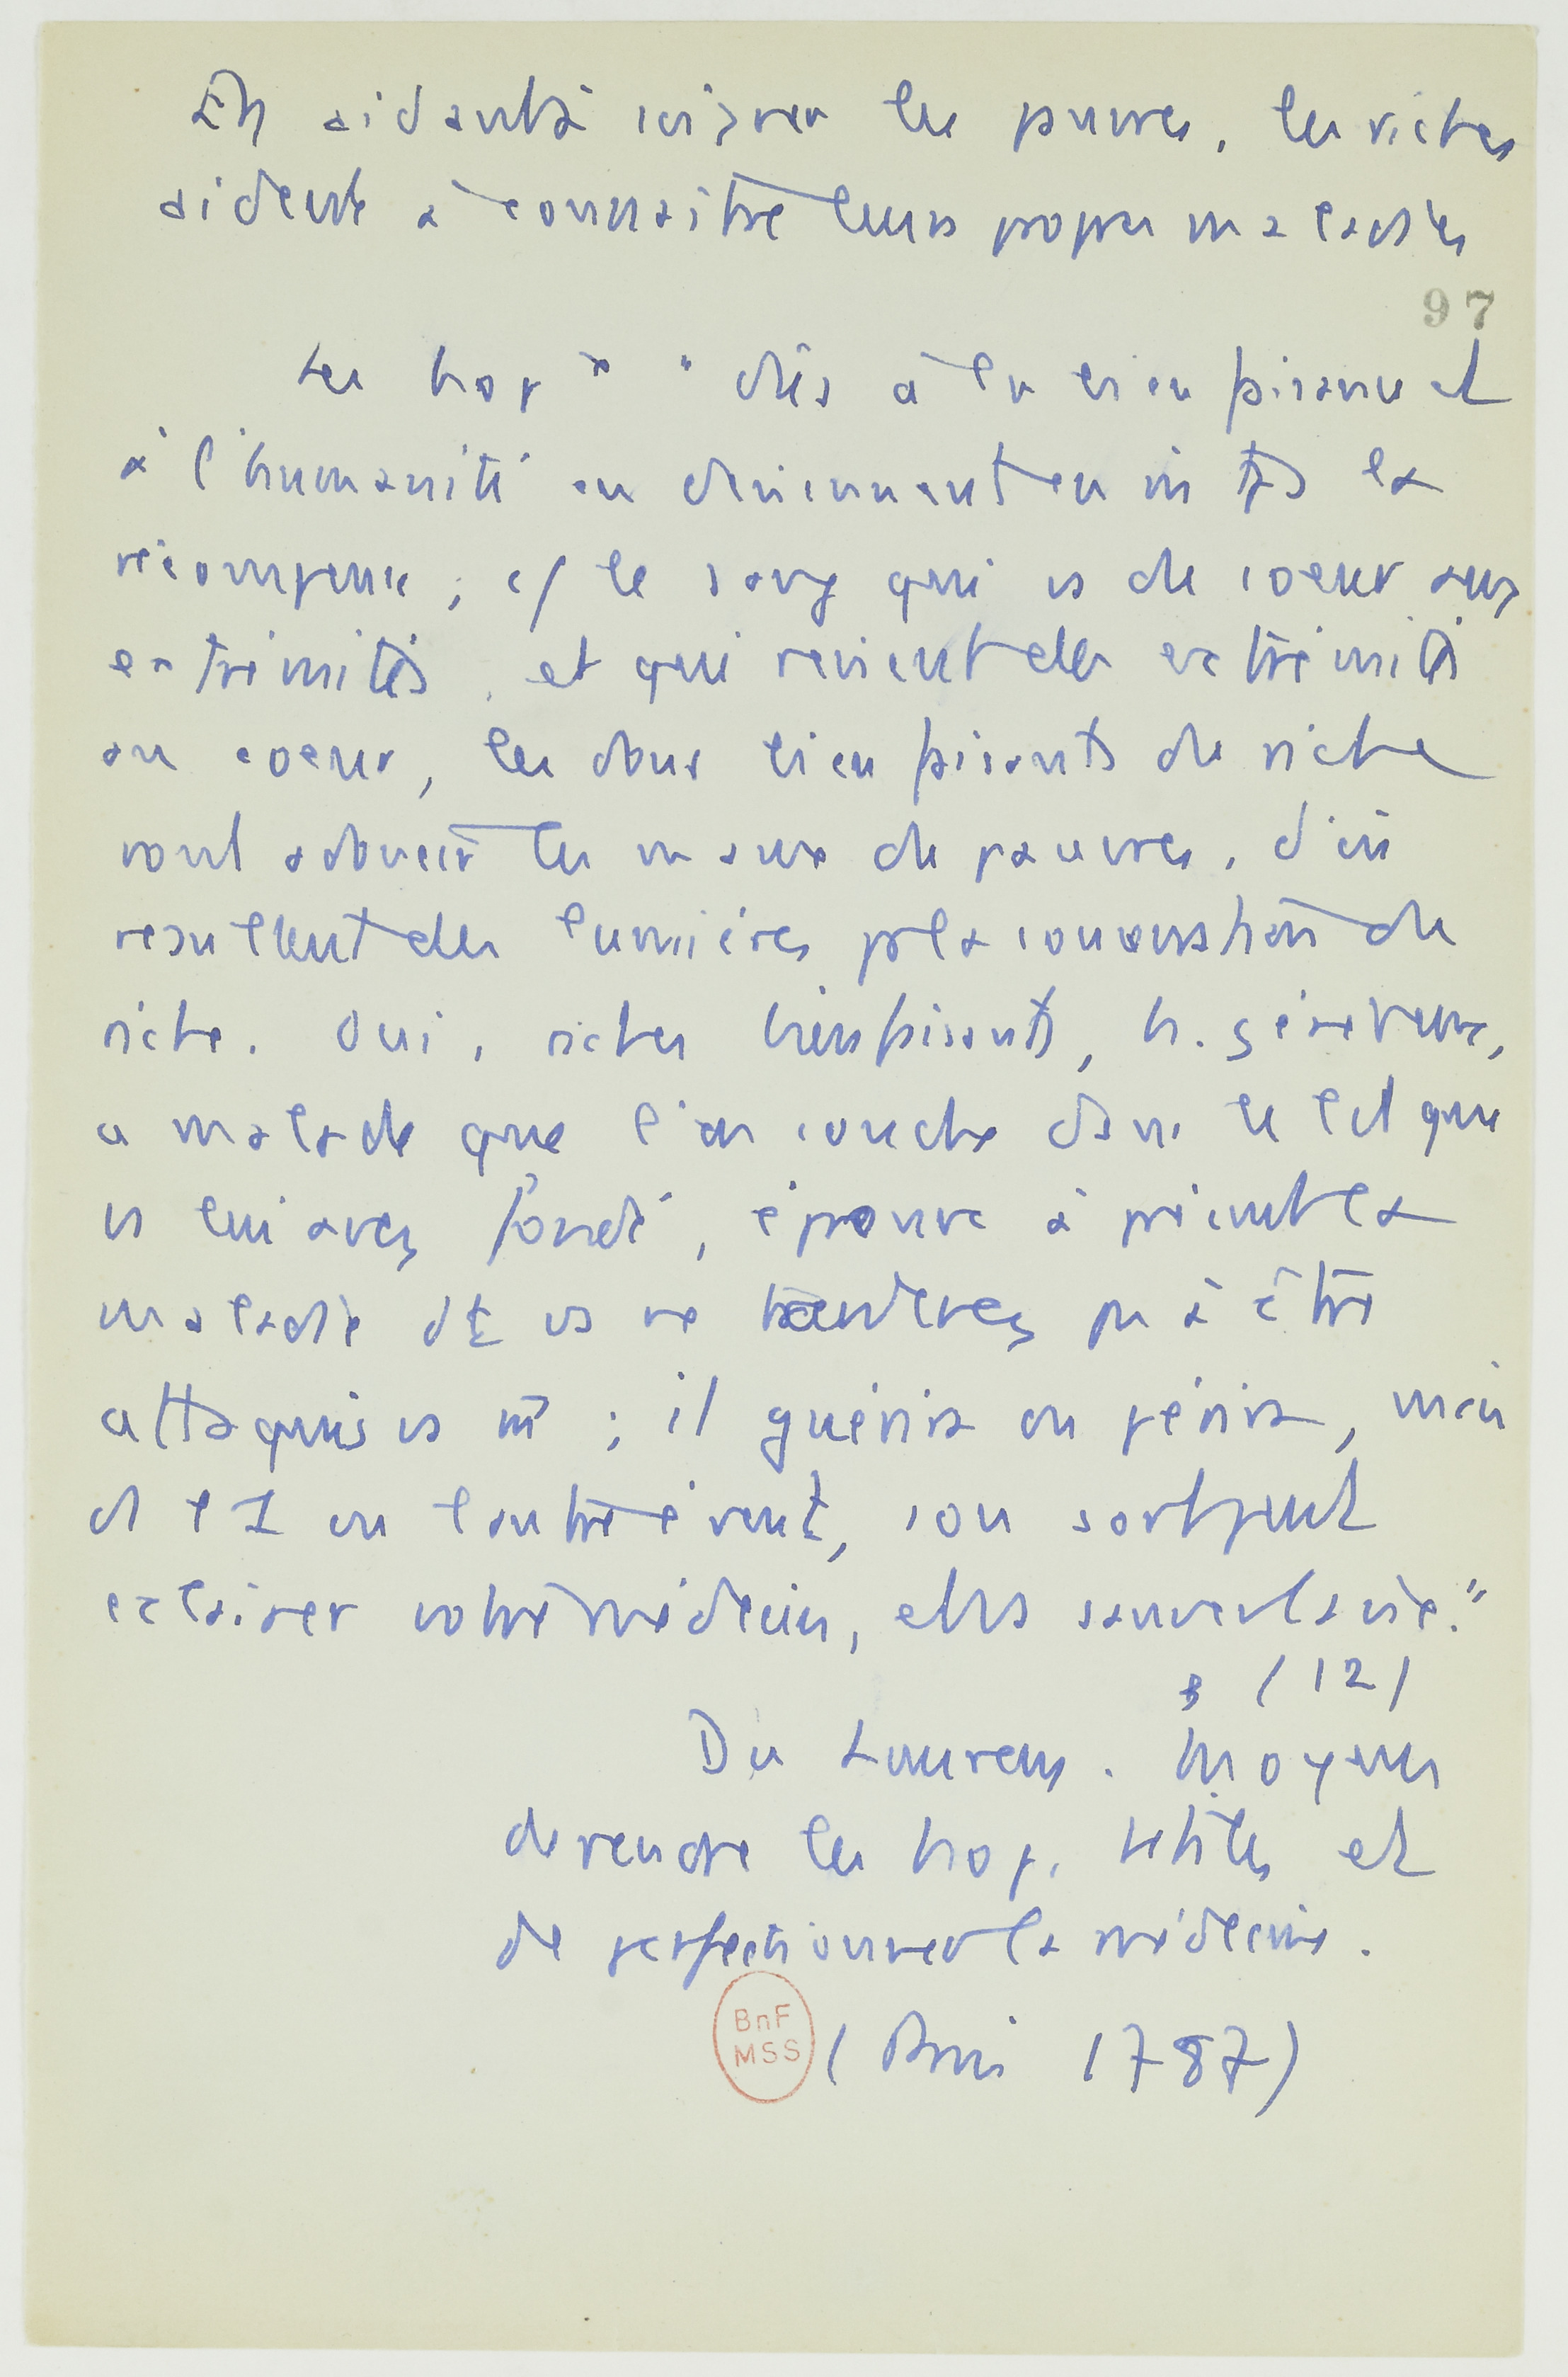 En aidant à soigner les pauvres, les riches
aident à connaitre leurs propres maladies
97
Les hopx " dûs à la bienfaisance et
à l'humanité en deviennent en m tps la
récompense ; c/ le sang qui vs du coeur aux
extrémités, et qui revient des extrémités
au coeur, les dons bienfaisants du riche
vont adoucir les maux du pauvre, d'où
resultent des lumières pr la conservation du
riche. Oui, riches bienfaisants, h. généreux,
ce malade que l'on couche dans le lit que
vs lui avez fondé, éprouve à présent la
maladie dt vs ne tarderez pas à être
attaqués vs m ; il guérira ou périra, mais
ds l'1 ou l'autre évent, son sort peut
eclairer votre médecin, et vs sauver la vie."
(12)
Du Laurens. Moyens
de rendre les hop. utiles et
de perfectionner la médecine.
BnF
MSS
(Paris 1787)